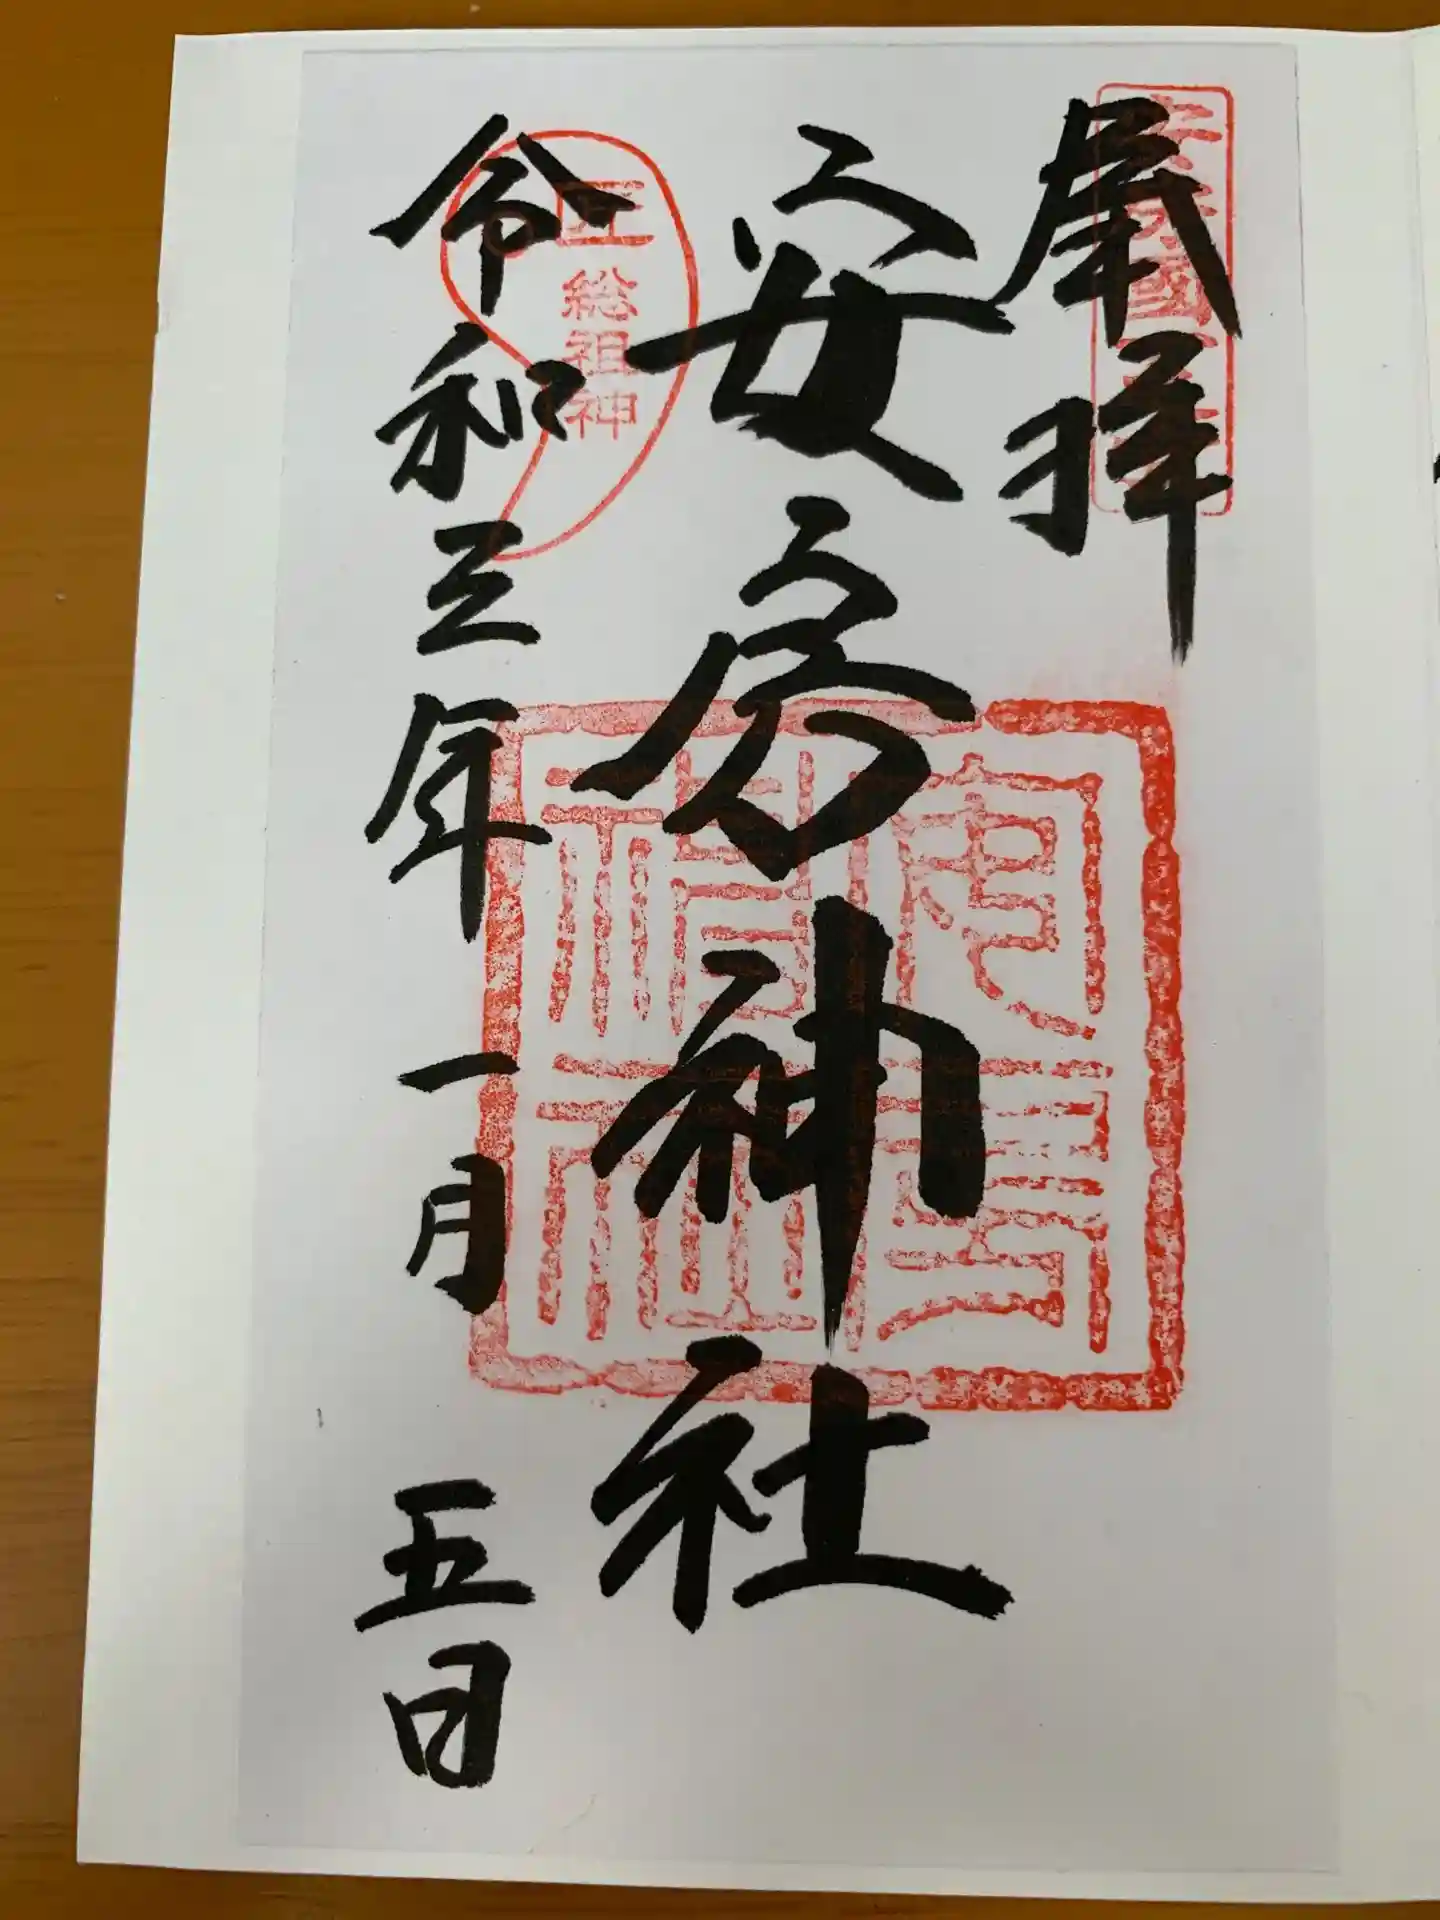 奉拝
安房國一之宮
安房神社
安房神社
匠総祖神
令和三年一月五日